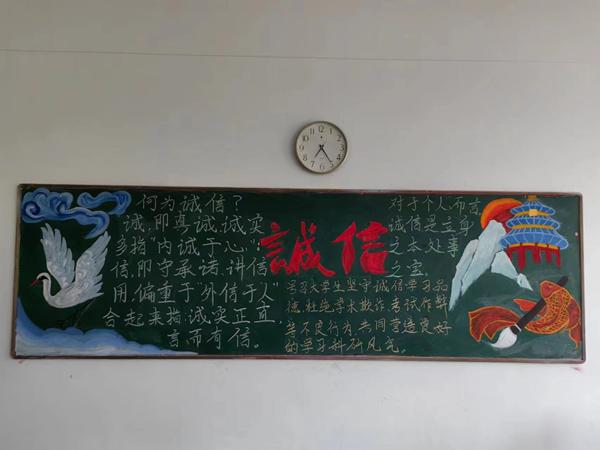 何为诚信?
诚,即真诚,诚实
多指"内诚于心";
信,即守承诺,讲信
用,偏重于"外信于人"
合起来指:诚实正直,
言而有信。
誠信
对于个人而言,
诚信是立身
之本处事
之宝。
号召大学生坚守诚信学习道
德,杜绝学术欺诈、考试作弊
等不良行为,共同营造良好
的学习科研风气。